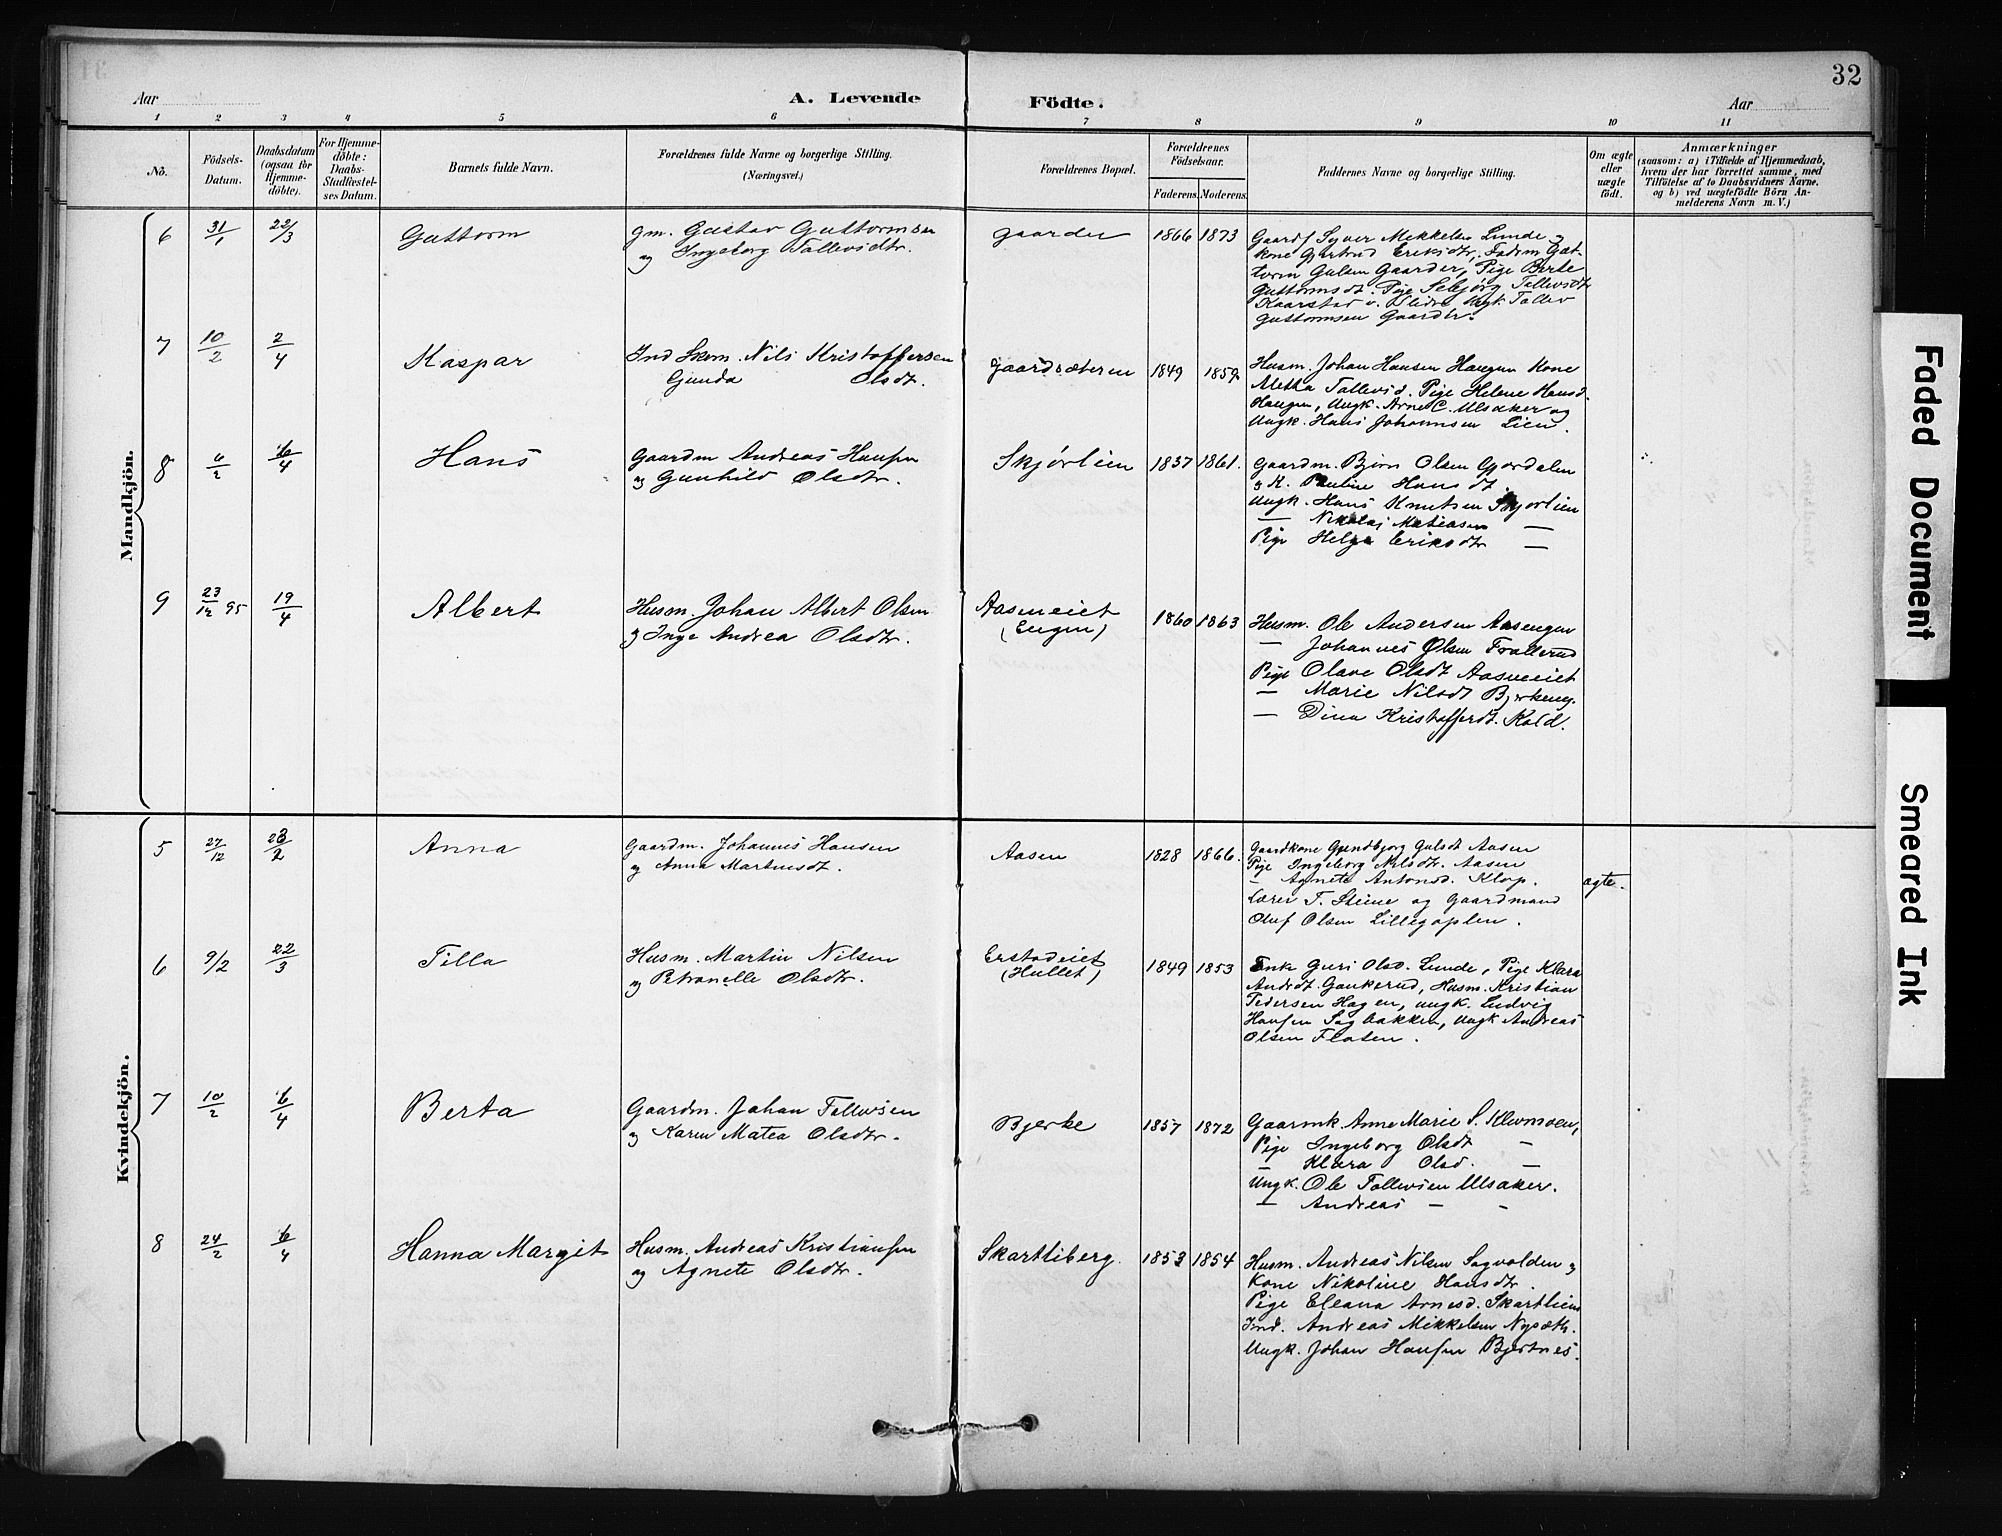 32
Aar
A. Levende
Födte.
Aar
1 2 3 4 5 6 7 8 9 10 11
No.
Födsels-Datum.
Daabsdatum (ogsaa for Hjemme-döbte).
For Hjemme-döbte: Daabs-Stadfæstel-ses Datum.
Barnets fulde Navn.
Forældrenes fulde Navne og borgerlige Stilling. (Næringsvei.)
Forældrenes Bopæl.
Forældrenes Födselsaar.
Faderens. Moderens.
Faddernes Navne og borgerlige Stilling.
Om ægte eller uægte født.
Anmærkninger
(saasom: a) i Tilfælde af Hjemmedaab,
hvem der har forrettet samme, med
Tilføielse af to Daabsvidners Navne.
og b) ved uægtefødte Börn An-
melderens Navn m. V.)
Mandkjön.
6 31/1 22/3 Guttorm
gm. Gustav Guttormsen
og Ingeborg Tollevsdtr.
Gaarder 1866 1873
Gaardf Syver Mekkelsen Lunde og
Kone Gjertrud Eriksdtr, Fadrm Gut-
torm Gulsen Gaarder, Pige Berte
Guttormsdt. Pige Sebjørg Tollevsdt
Kaarstad v. Slidre Ungk. Tollev
Guttormsen Gaarder.
7 10/2 2/4 Kaspar
Ind Skom. Nils Kristoffersen
Gunda Olsdt.
Gaardsæteren 1849 1859
Husm. Johan Hansen Haugen Kone
Aletha Tollevsd. Pige Helene Hansd.
Haugen, Ungk. Arne C. Ulsaker og
Ungk. Hans Johannsen Lien.
8 6/2 6/4 Hans
Gaardm Andreas Hansen
og Gunhild Olsdtr.
Skjørlien 1837 1861.
Gaardm. Bjørn Olsen Gjordalen
og K. Pauline Hansdt.
Ungk. Hans Knutsen Skjorlien
— Nikolaj Matiasen —
Pige Helga Eriksdtr —
9 23/12 95 19/4 Albert
Husm. Johan Albert Olsen
og Inge Andrea Olsdtr.
Aaseneiet
(Engen)
1860 1863
Husm. Ole Andersen Aasengen
— Johannes Olsen Frøllerud
Pige Olave Olsdt Aaseneiet
— Marie Nilsdt Bjerkeng.
— Dina Kristoffersdt. Kold.
Kvindekjön.
5 27/12 23/2 Anna
Gaardm. Johannes Hansen
og Anna Martinsdt.
Aasen 1828 1866.
Gaardkone Gundbjørg Gulsdt Aasen
Pige Ingeborg Nilsdtr. Aasen
— Agnete Antonsd. Klop.
Lærer T. Steine og Gaardmand
Oluf Olsen Lillegoplen.
ægte.
6 9/2 22/3 Tilla
Husm. Martin Nilsen
og Petronelle Olsdtr.
Erstadeiet
(Hullet)
1849 1853
Enk Guri Olsd. Lunde, Pige Klara
Andrdt. Gaukerud, Husm. Kristian
Pedersen Hagen, Ungk. Ludvig
Hansen Sagbakken, Ungk Andreas
Olsen Flaten.
7 10/2 6/4 Berta
Gaardm. Johan Tollevsen
og Karen Matea Olsdtr.
Bjerke 1857 1872
Gaarmk. Anne Marie S. Klemmoen,
Pige Ingeborg Olsdt —
— Klara Olsd. —
Ungk. Ole Tollevsen Ulsaker.
— Andreas — —
8 24/2 6/4 Hanna Margit
Husm. Andreas Kristiansen
og Agnete Olsdtr.
Skartliberg. 1853 1854
Husm. Andreas Nilsen Sagvolden og
Kone Nikoline Hansdtr.
Pige Eleana Arnesd. Skartliens
Ind. Andreas Mikkelsen Nysæth.
Ungk. Johan Hansen Bjertnes.
Faded Document
Smeared Ink